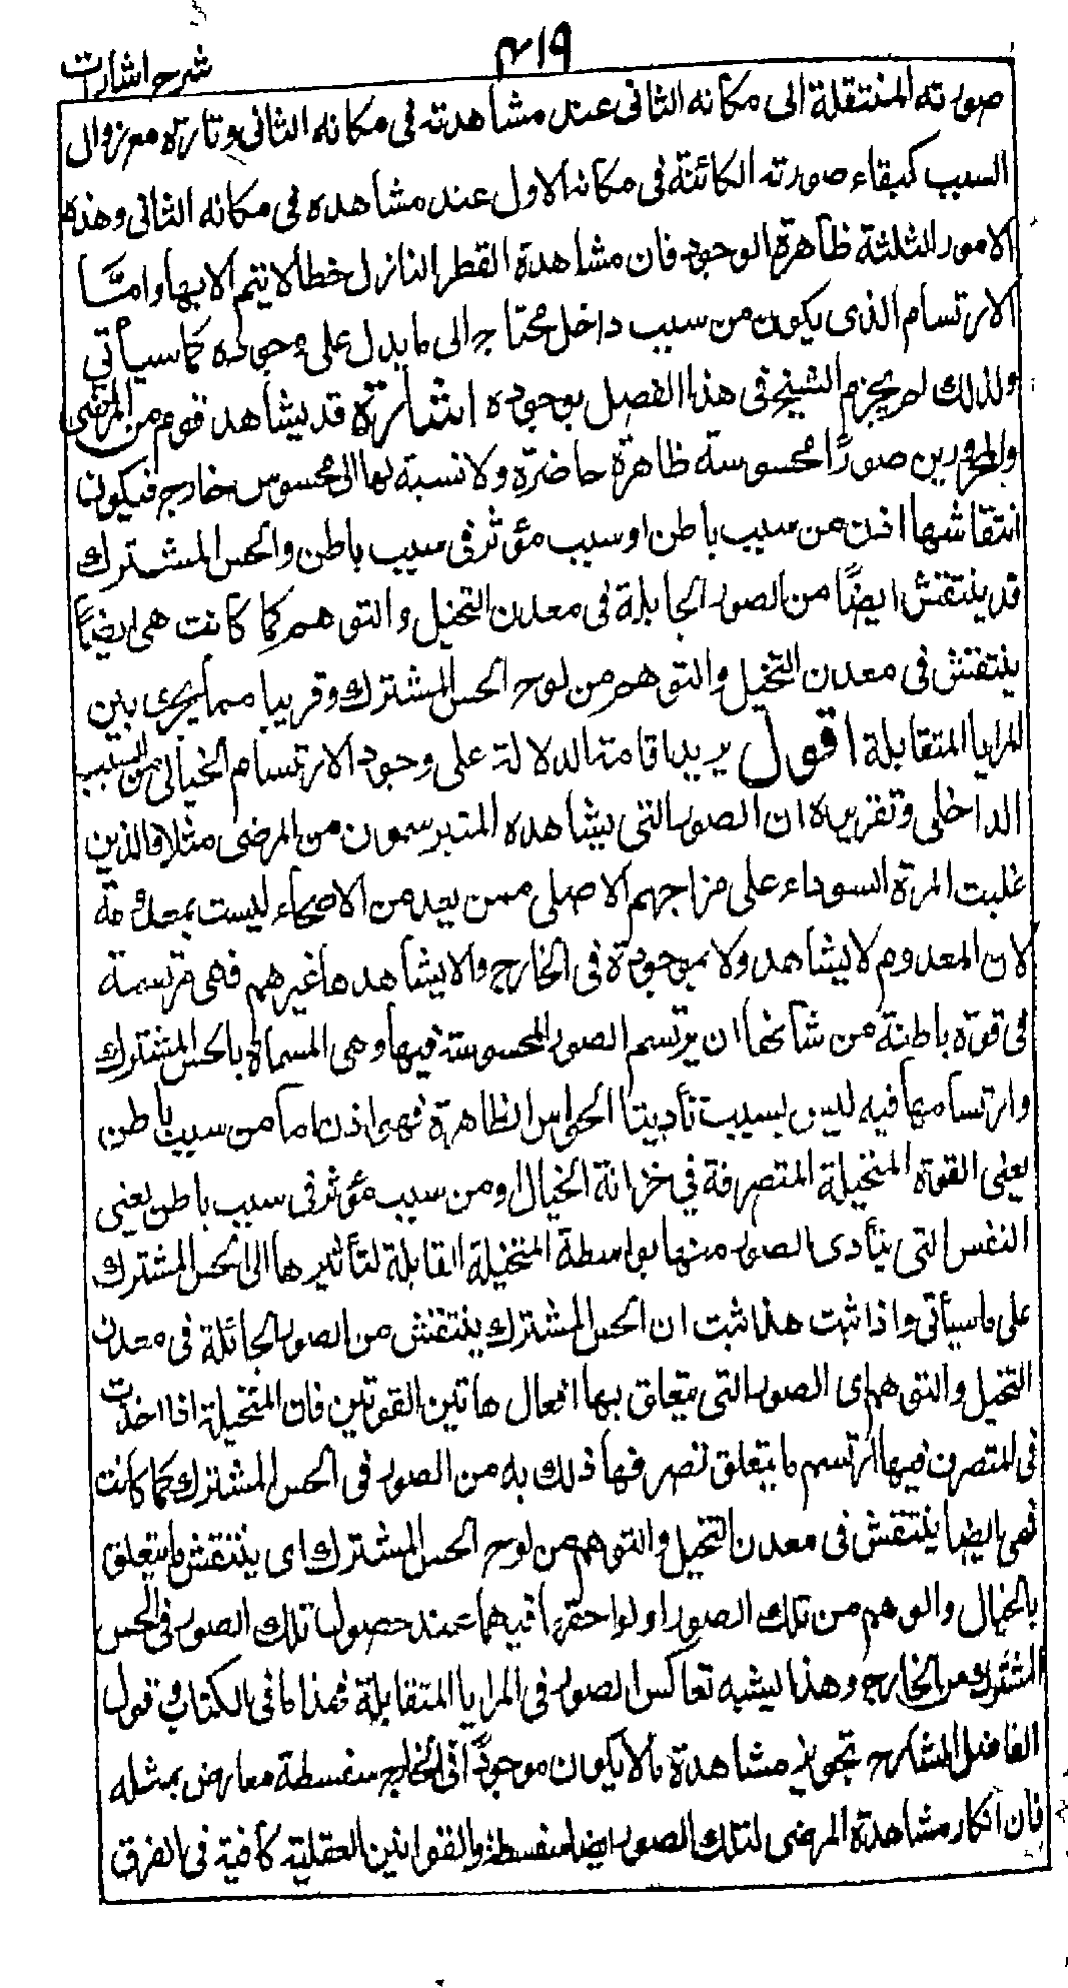 ٤١٩
شرح اشارات
صورته المنتقلة الى مكانه الثانى عند مشاهدته فى مكانه الثانى وتارة مع زوال
السبب كبقاء صورته الكائنة فى مكانه الاول عند مشاهده فى مكانه الثانى وهذه
الامور الثلثة ظاهرة الوجود فان مشاهدة القطر النازل خطا لا يتم الا بها واما
الارتسام الذى يكون من سبب داخل محتاج الى ما يدل على وجوده كما سيأتى
ولذلك لم يجزم الشيخ فى هذا الفصل بوجوده اشارة قد يشاهد قوم من المرضى
والممرورين صورًا محسوسة ظاهرة حاضرة ولا نسبة لها الى محسوس خارج فيكون
انتقاشها اذن من سبب باطن او سبب مؤثر فى سبب باطن والحس المشترك
قد ينتقش ايضًا من الصور الجايلة فى معدن التخيل والتوهم كما كانت هى ايضًا
ينتقش فى معدن التخيل والتوهم من لوح الحس المشترك وقريبا مما يجرى بين
المرايا المتقابلة اقول يريد اقامة الدلالة على وجود الارتسام الخيالى من السبب
الداخلى وتقريره ان الصور التى يشاهده المتبرسمون من المرضى مثلا والذين
غلبت المرة السوداء على مزاجهم الاصلى ممن يعد من الاصحاء ليست بمعدومة
لان المعدوم لا يشاهد ولا بموجودة فى الخارج والا يشاهدها غيرهم فهى مرتسمة
فى قوة باطنة من شانها ان يرتسم الصور المحسوسة فيها وهى المسماة بالحس المشترك
وارتسامها فيه ليس بسبب تأديتا الحواس الظاهرة فهى اذن اما من سبب باطن
يعنى القوة المتخيلة المتصرفة في خزانة الخيال ومن سبب مؤثر فى سبب باطن يعنى
النفس التى يتأدى الصور منها بواسطة المتخيلة القابلة لتأثيرها الى الحس المشترك
على ما سيأتى واذا ثبت هذا ثبت ان الحس المشترك ينتقش من الصور الجائلة فى معدن
التخيل والتوهم اى الصور التى يتعلق بها افعال هاتين القوتين فان المتخيلة اذا اخذت
فى المتصرف فيها ارتسم ما يتعلق تصرفها ذلك به من الصور فى الحس المشترك كما كانت
هى ايضا ينتقش فى معدن التخيل والتوهم من لوح الحس المشترك اى ينتقش ما يتعلق
بالخيال والوهم من تلك الصور او لواحقها فيهما عند حصول تلك الصور فى الحس
المشترك من الخارج وهذا يشبه تعاكس الصور فى المرايا المتقابلة فهذا ما فى الكتاب وقول
الفاضل الشارح تجويز مشاهدة ما لا يكون موجودًا فى الخارج سفسطة معارض بمثله
فان انكار مشاهدة المرضى لتلك الصور ايضا سفسطة والقوانين العقلية كافية فى الفرق